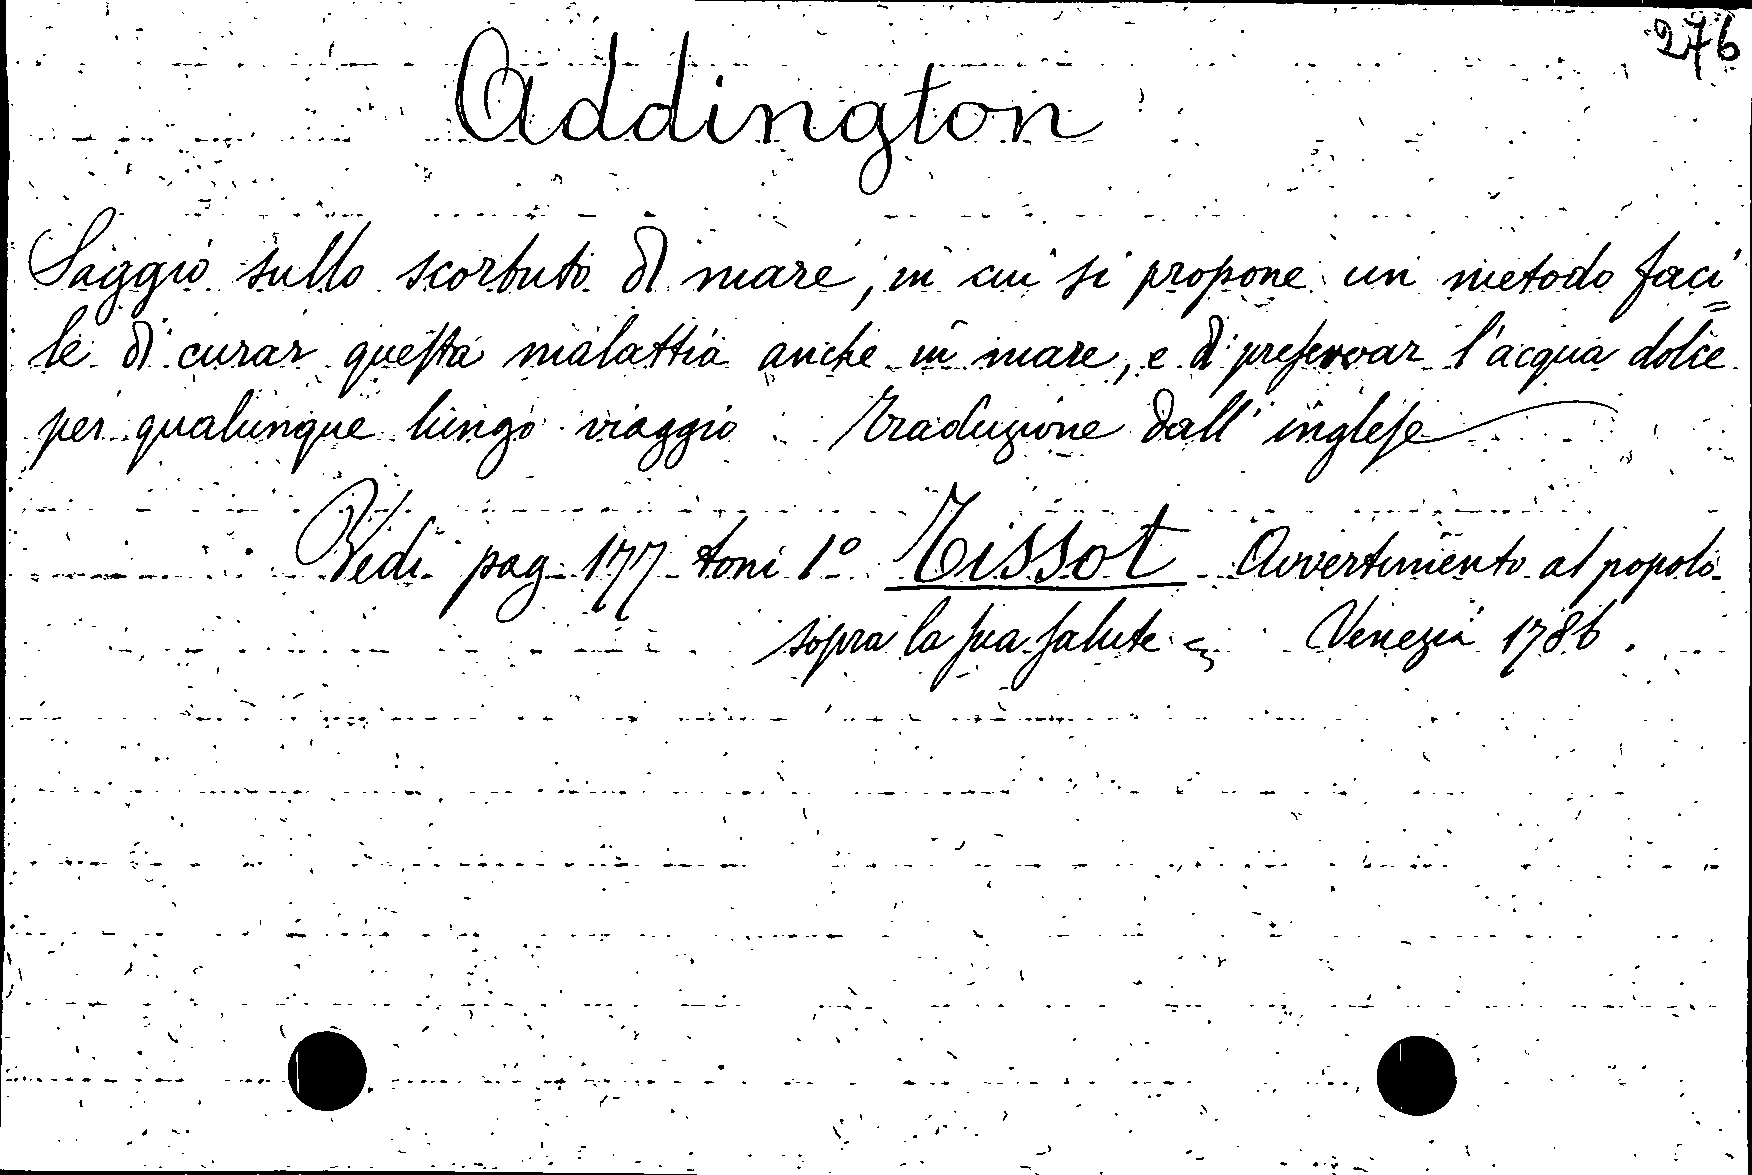 276
Addington
Saggio sullo scorbuto di mare, in cui si propone un metodo faci=
le di curar questa malattia anche in mare, e di preservar l'acqua dolce
per qualunque lungo viaggio Traduzione dall' inglese
Vedi pag 177 tom 1º Tissot Avvertimento al popolo
sopra la sua salute = Venezia 1786.